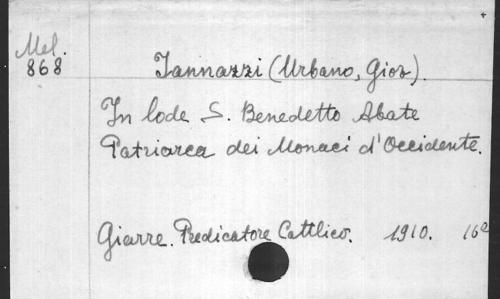 Mel.
868
Iannazzi (Urbano, Gios).
In lode S. Benedetto Abate
Patriarca dei Monaci d'Occidente.
Giarre. Predicatore Cattlico. 1910. 16º